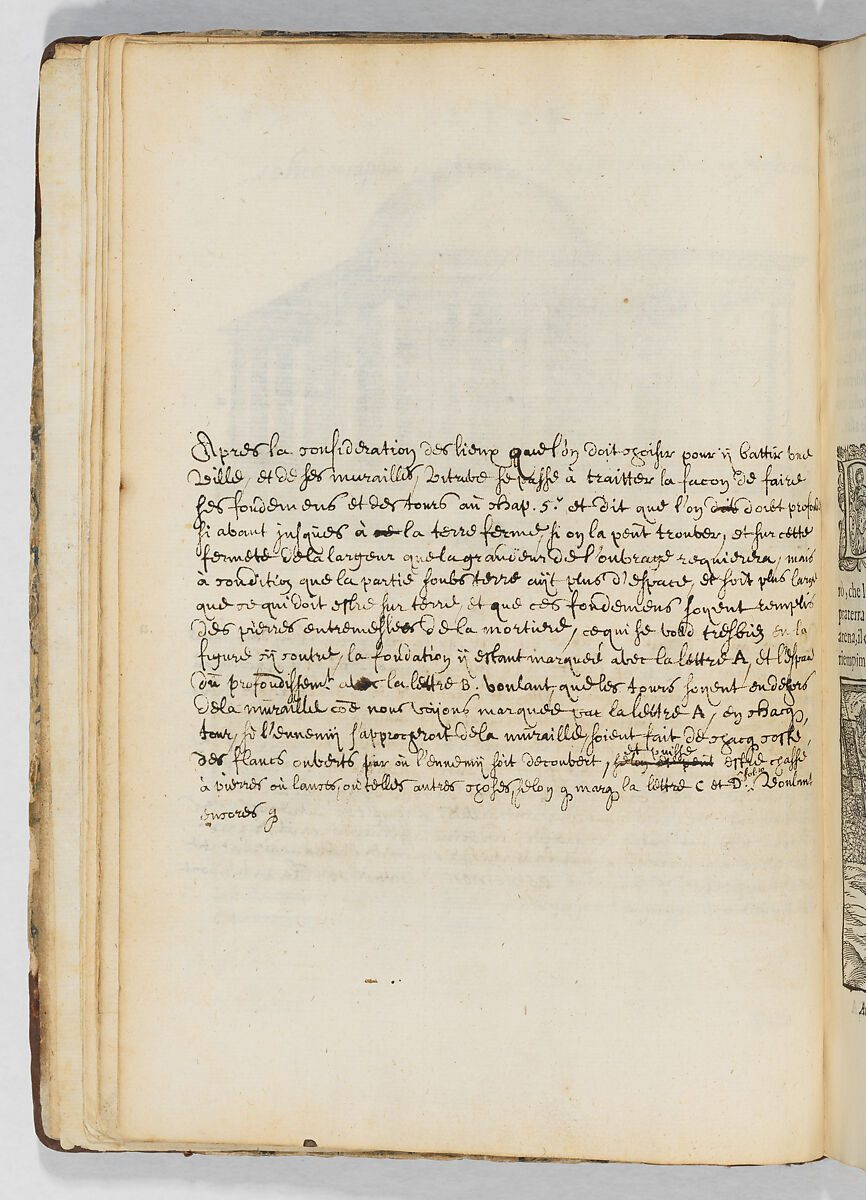 Apres la consideration des lieux que l'on doit choisir pour ÿ battir une
Ville, et de ses murailles, Vitruve se passe à traitter la facon de faire
ses fondemens et des tours au chap. 5. et dit que l'on doibt profond
si avant jusques à la terre ferme, si on la peut trouver, et sur cette
fermeté de la largeur que la grandeur de l'ouvrage requierera, mais
à condition que la partie soubs terre aÿt plus d'espace, et soit plus large
que ce qui doit estre sur terre, et que ces fondemens soyent remplis
des pierres entremeslees de la mortiere, ce qui se void tresbien en la
figure cÿ contre, la fondation ÿ estant marqueé avec la lettre A, et l'espace
du profondissemt. avec la lettre B. voulant, que les tours soyent en dehors
de la muraille coe nous voÿons marqueé par la lettre A, en chacq,
tour, si l'ennemÿ s'approcheroit de la muraille, soient fait de chacq costé,
des flancs ouverts par où l'ennemÿ soit decouvert, et puisse estre chassé
à pierres où lances, où telles autres choses, selon q marq la lettre C et D. Voulant
encores q
rò, che l
praterra
arena, il c
riempim